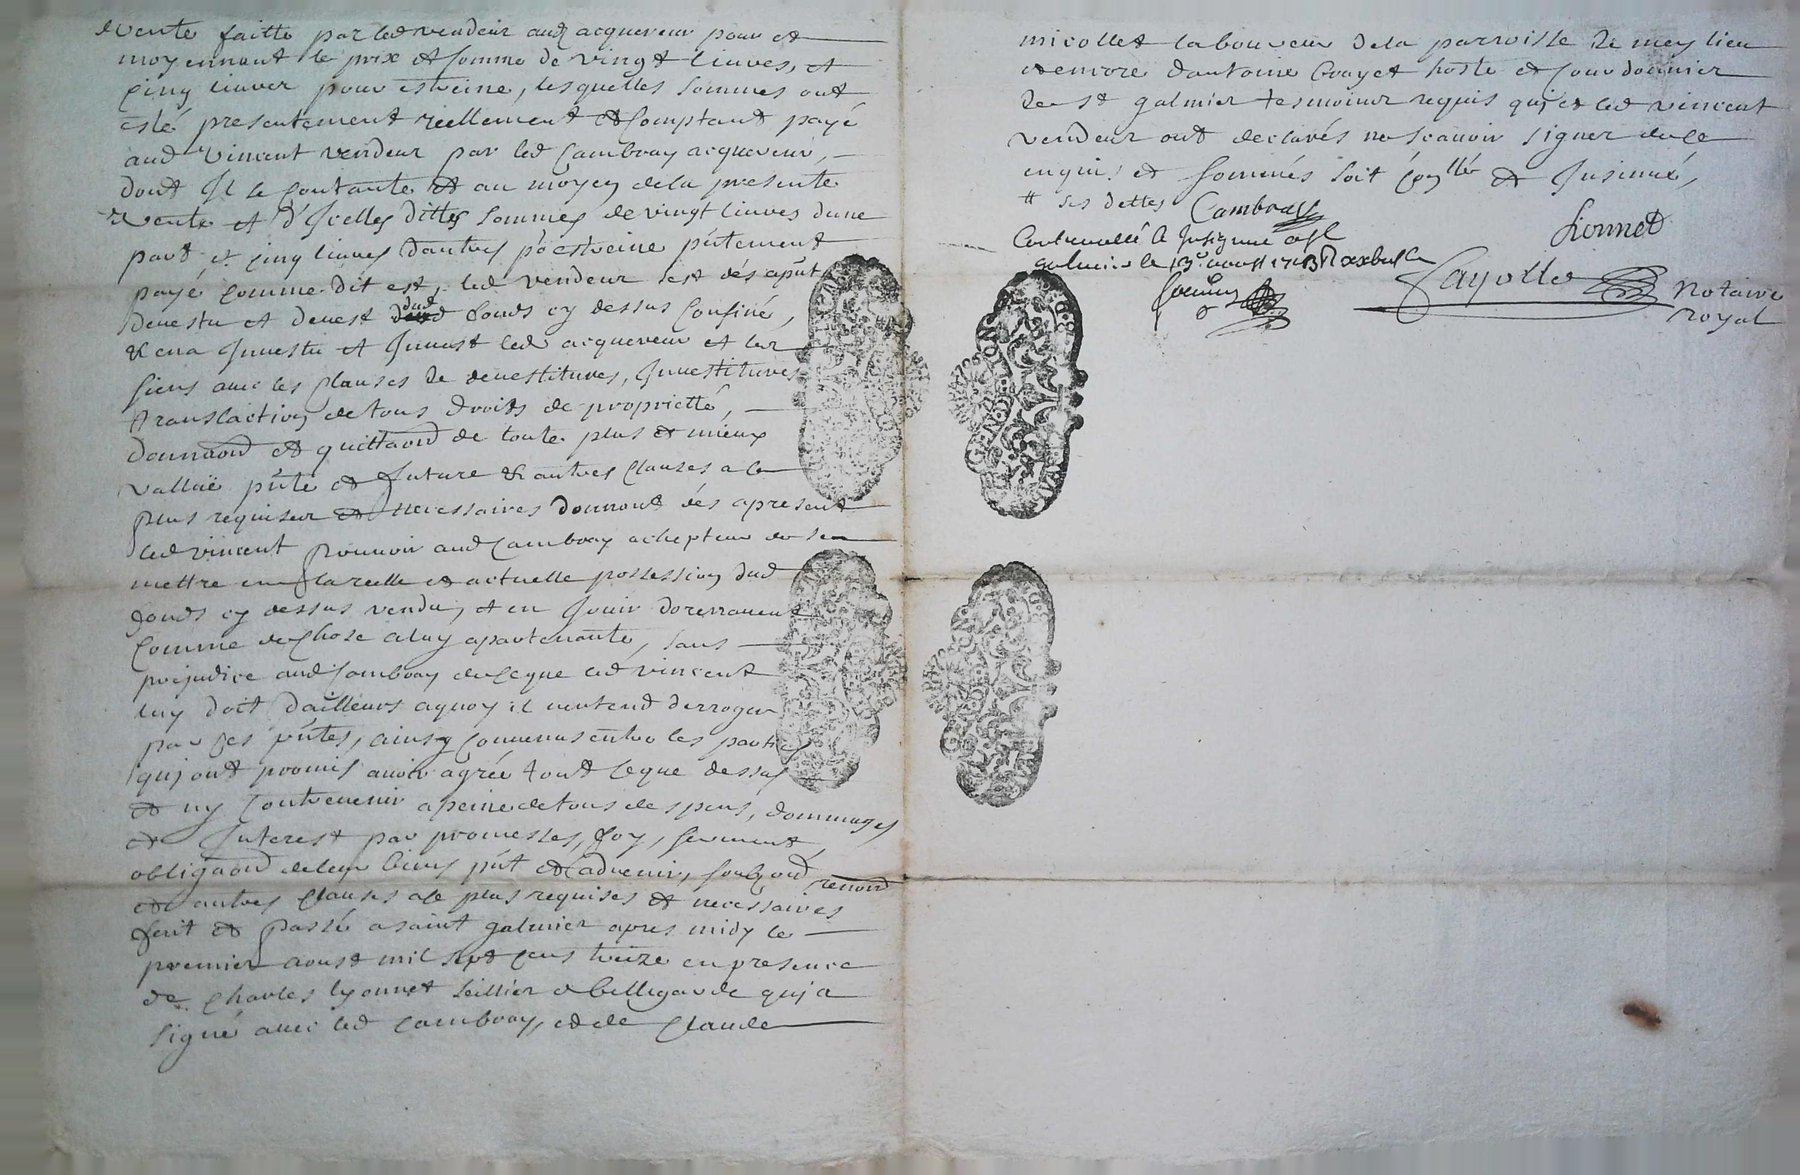 Vente faitte par led vendeur aud acquereur pour et
moyennant le prix et somme de vingt livres, et
cinq livres pour estreine, lesquelles sommes ont
esté presentement réellement et comptant payé
aud Vincent vendeur par led Cambray acquereur,
dont Il se contante et au moyen dela presente
Vente et d'Icelles dittes sommes de vingt livres dune
part et cinq livres dautres p^r estreine p^ntement
payé comme dit est, led vendeur sest dés apñt
devestu et devest dud fonds cy dessus confiné,
& en a Investu et Invest led acquereur et les
siens avec les clauses de devestitures, Investitures
translaction de tous droits de proprietté,
donnaõn et quittaõn de toute plus et mieux
vallüe p^nte et future & autres clauses a ce
plus requises et necessaires donnant dés apresent
led vincent Pouvoir aud Cambray achepteur de sen
mettre en la reelle et actuelle possession dud
fonds cy dessus vendu, et en Jouir dorenavent
comme de chose a luy apartenante, sans
prejudice aud Cambray de ce que led vincent
luy doit d'ailleurs aquoy il nentend derroger
par ces p^ntes, ainsy convenus entre les parties
qui ont promis avoir agrée tout ceque dessus
et ny contrevenir a peine de tous despens, dommages
et Interest par promesses, foy, serment,
obligaõn de leur biens p^nt et advenir, soubzõn renonõn
et autres clauses ale plus requises et necessaires
fait et Passé a saint galmier apres midy le
premier aoust mil sept cens treize en presence
de Charles lyonnet sellier a bellegarde qui a
signé avec led Cambray, et de Claude
micollet laboureur dela parroisse de meylieu
et encore dantoine Crayet hoste et cour donnier
de st galmier tesmoins requis qui et led vincent
vendeur ont declarés ne scavoir signer de ce
enquis et sommés soit coñllé et Insinué,
# ses dettes Cambray
Lionnet
Controllé & Insignué a st
galmier le 13^e aoust 1713
Cayolle Notaire
royal